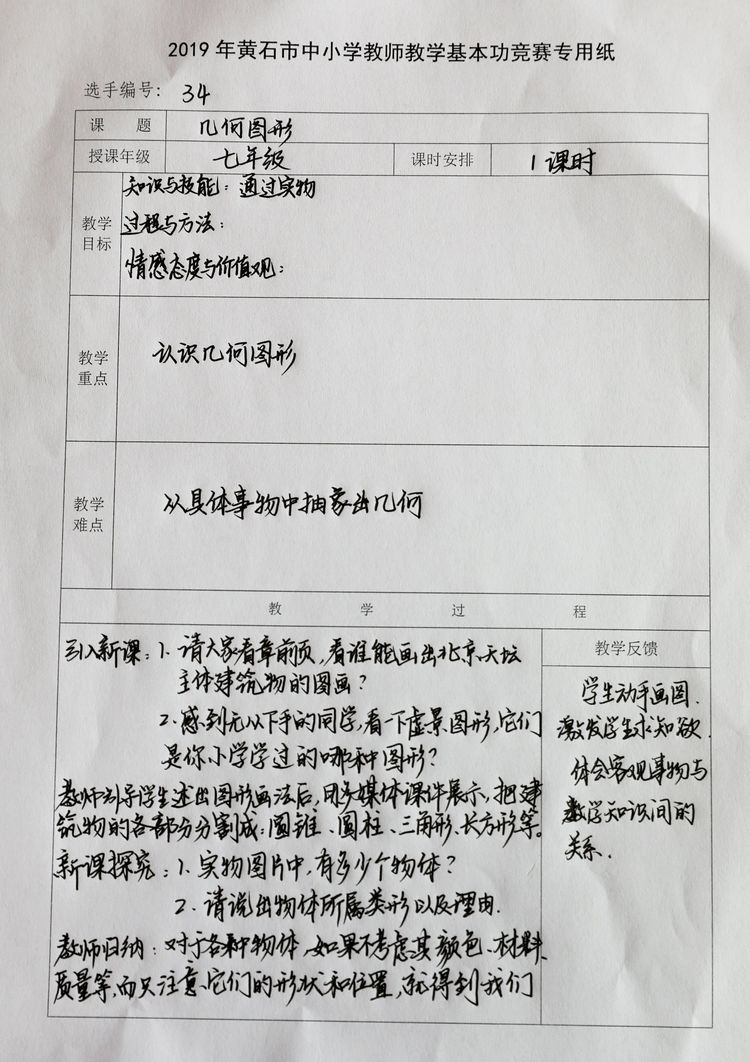 2019年黄石市中小学教师教学基本功竞赛专用纸
选手编号: 34
课 题 几何图形
授课年级 七年级 课时安排 1课时
教学目标
知识与技能:通过实物
过程与方法:
情感态度与价值观:
教学重点
认识几何图形
教学难点
从具体事物中抽象出几何
教 学 过 程
引入新课:1. 请大家看章前页,看谁能画出北京天坛
主体建筑物的图画?
2. 感到无从下手的同学,看一下虚景图形,它们
是你小学学过的哪种图形?
教师引导学生述出图形画法后,用多媒体课件展示,把建
筑物的各部分分割成:圆锥、圆柱、三角形、长方形等。
新课探究:1. 实物图片中,有多少个物体?
2. 请说出物体所属类形以及理由.
教师归纳:对于各种物体,如果不考虑其颜色、材料、
质量等,而只注意它们的形状和位置,就得到我们
教学反馈
学生动手画图.
激发学生求知欲.
体会客观事物与
数学知识间的
关系.